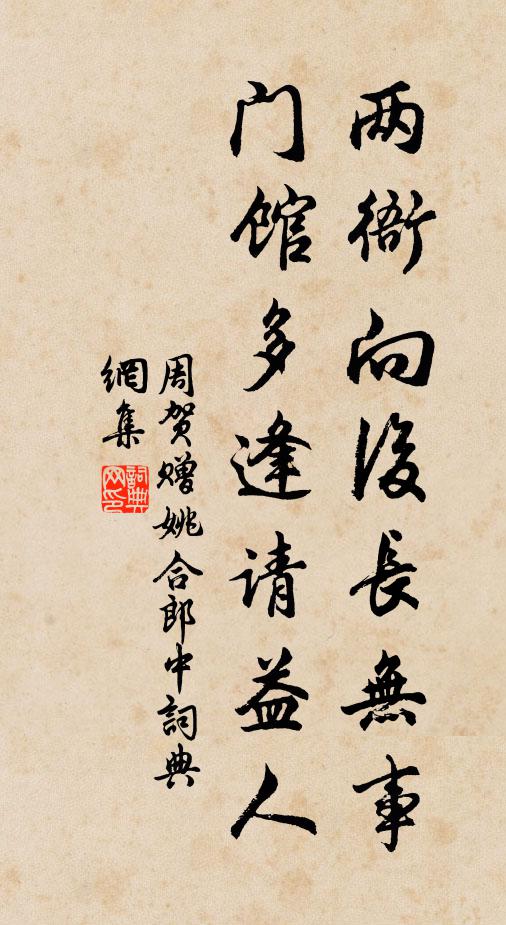 两衙向後長無事
门馆多逢请益人
周贺赠姚合郎中詞典
網集
詞典
网印